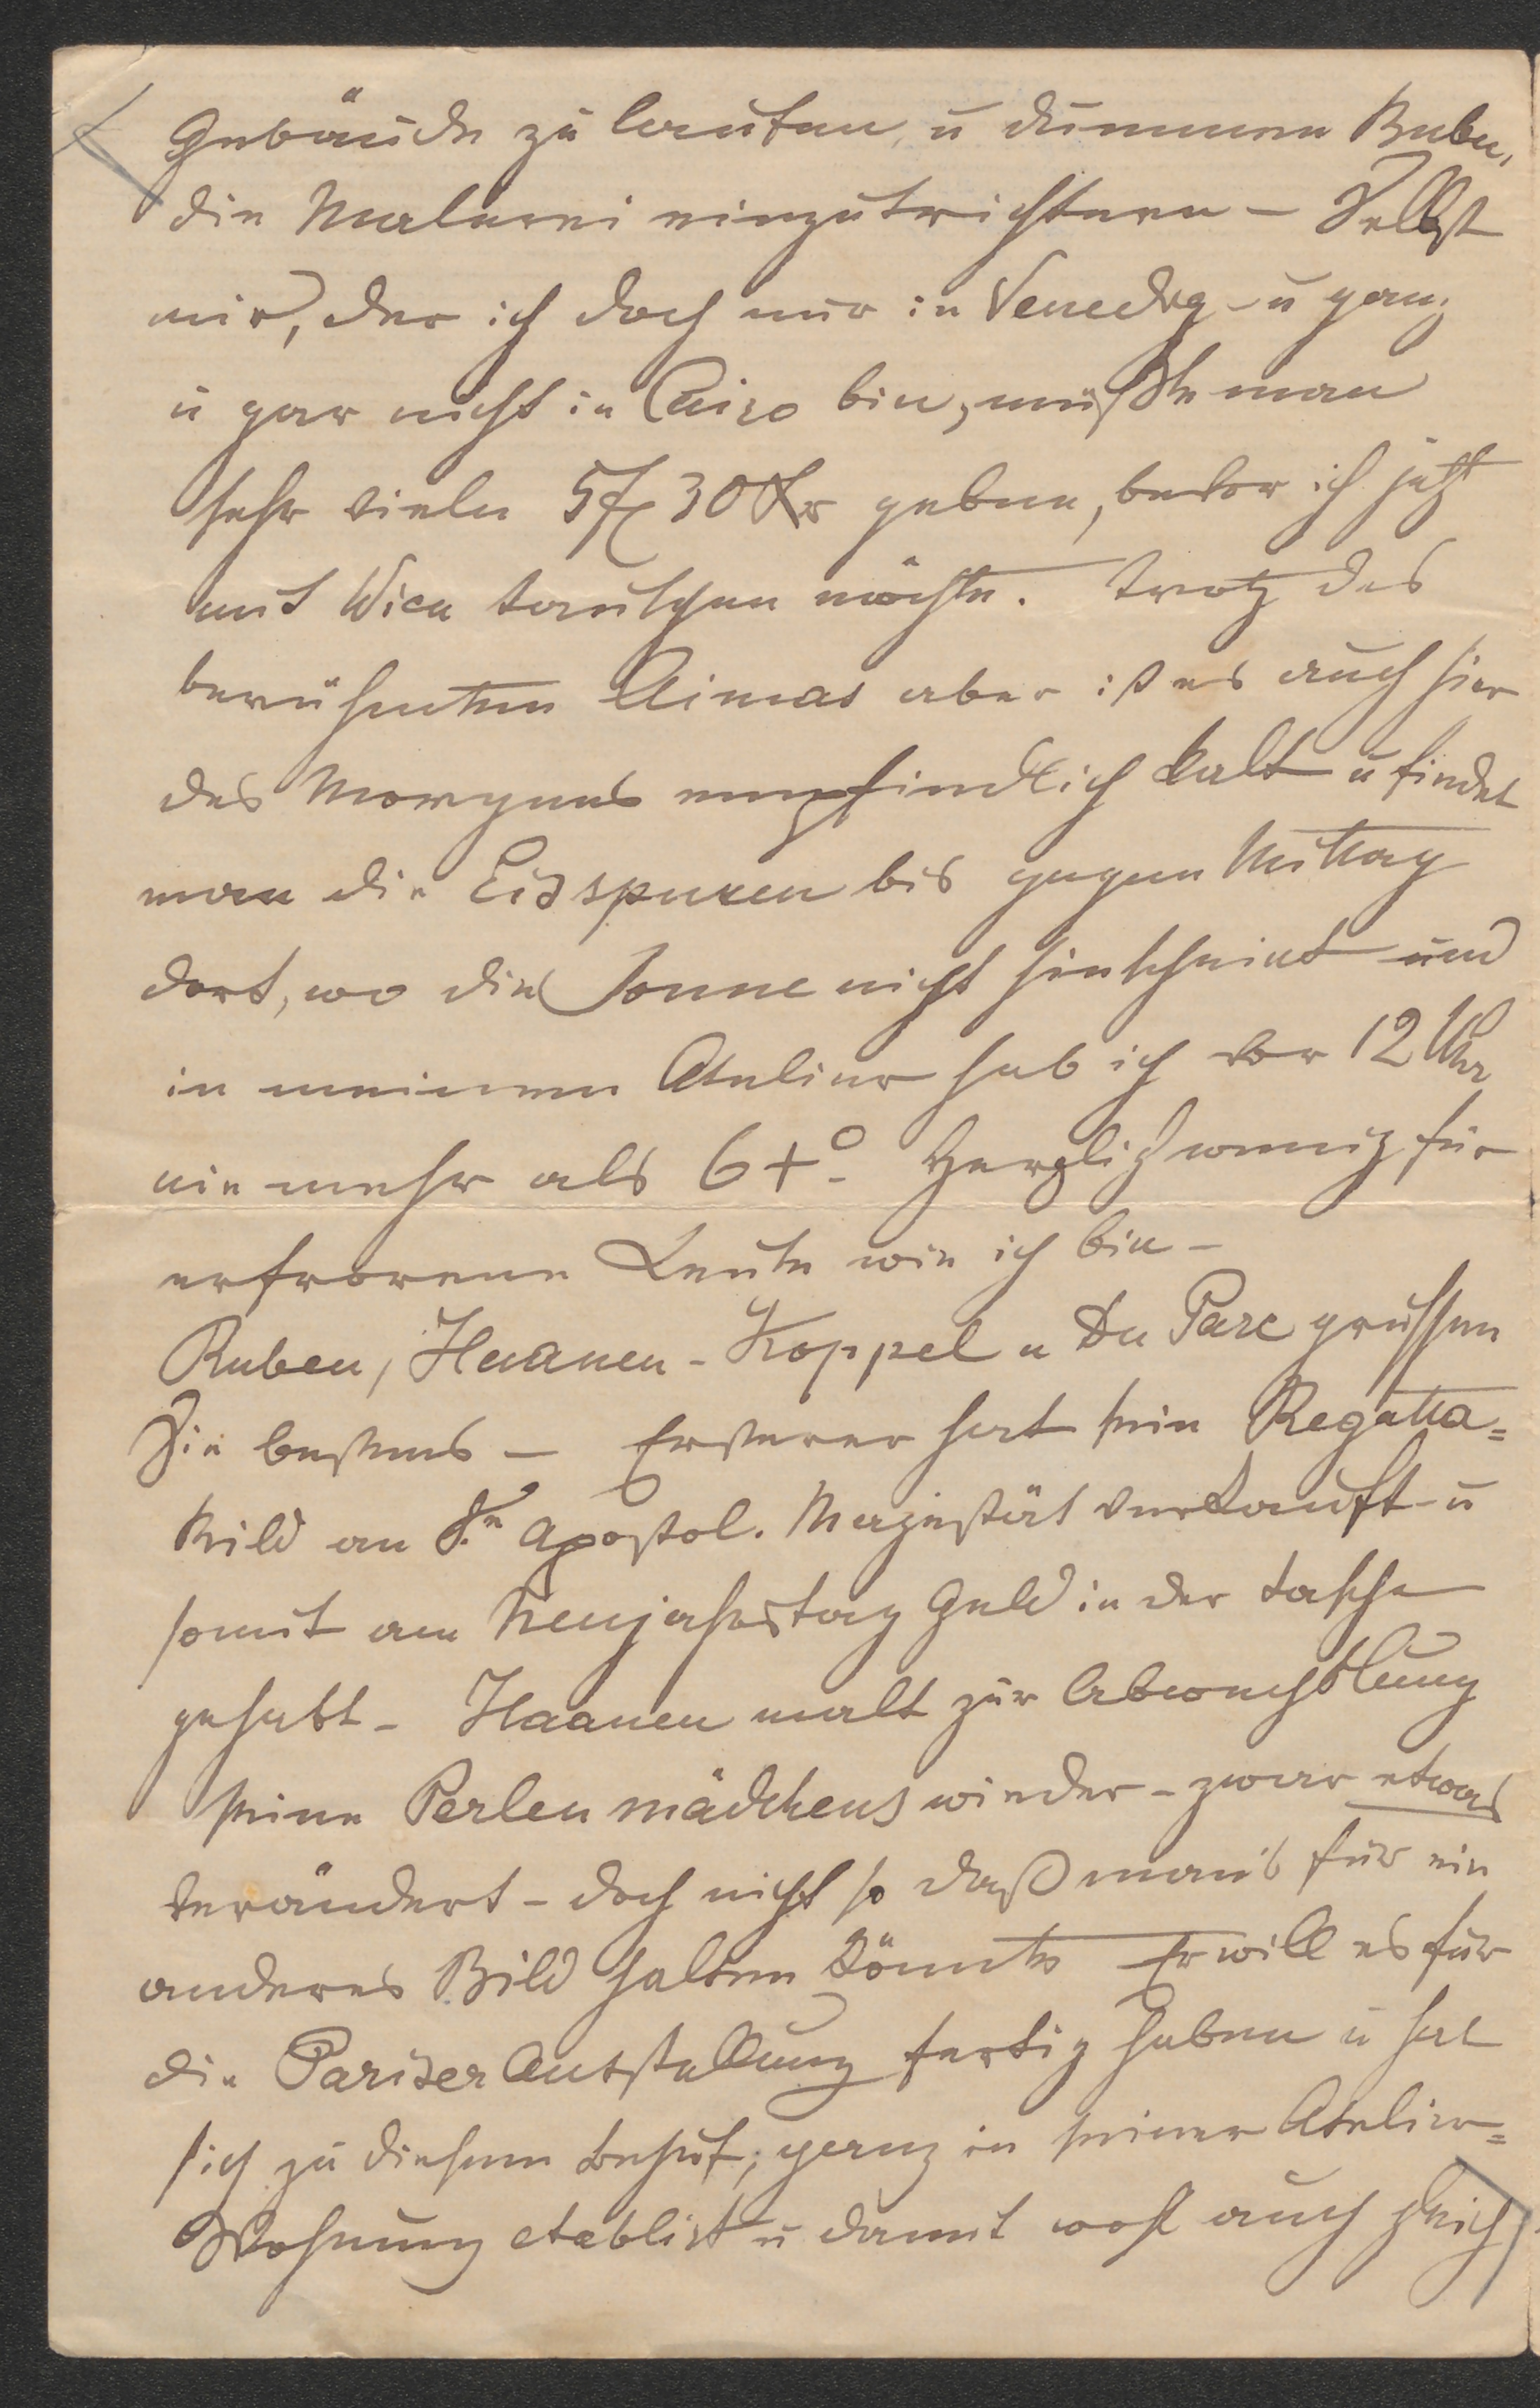 Gebäude zu laufen, u dummen Buben,
die Malerei einzutrichtern – Selbst
mir, der ich doch nur in Venedig – u ganz
u gar nicht in Cairo bin, müßte man
sehr viele 5 fl 30 Kr geben, bevor ich jetzt
mit Wien tauschen möchte. Trotz des
berühmten Climas aber ist es auch hier
des Morgens empfindlich kalt u findet
man die Eisspuren bis gegen Mittag
dort, wo die Sonne nicht hinscheint und
in meinem Atelier hab ich vor 12 Uhr
nie mehr als 6+°. Herzlich wenig für
erfrorene Leute wie ich bin –
Ruben, Haanen – Koppel u Du Parc grüssen
Sie bestens – Ersterer hat sein Regatta=
bild an Se. Apostol. Majestät verkauft – u
somit am Neujahrstag Geld in der Tasche
gehabt – Haanen malt zur Abwechslung
seine Perlenmädchens wieder – zwar etwas
verändert – doch nicht so daß man's für ein
anderes Bild halten könnte Er will es für
die Pariser Ausstellung fertig haben u hat
sich zu diesem Behuf, ganz in seiner Atelier=
Wohnung etablirt u damit wohl auch gleich